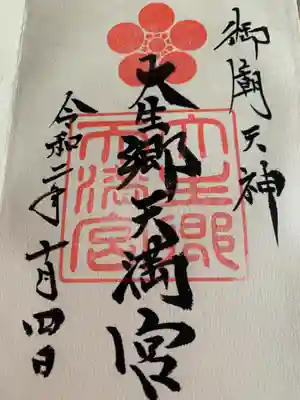 御廟天神
大生郷天満宮
令和二年十月四日
大生郷
天満宮